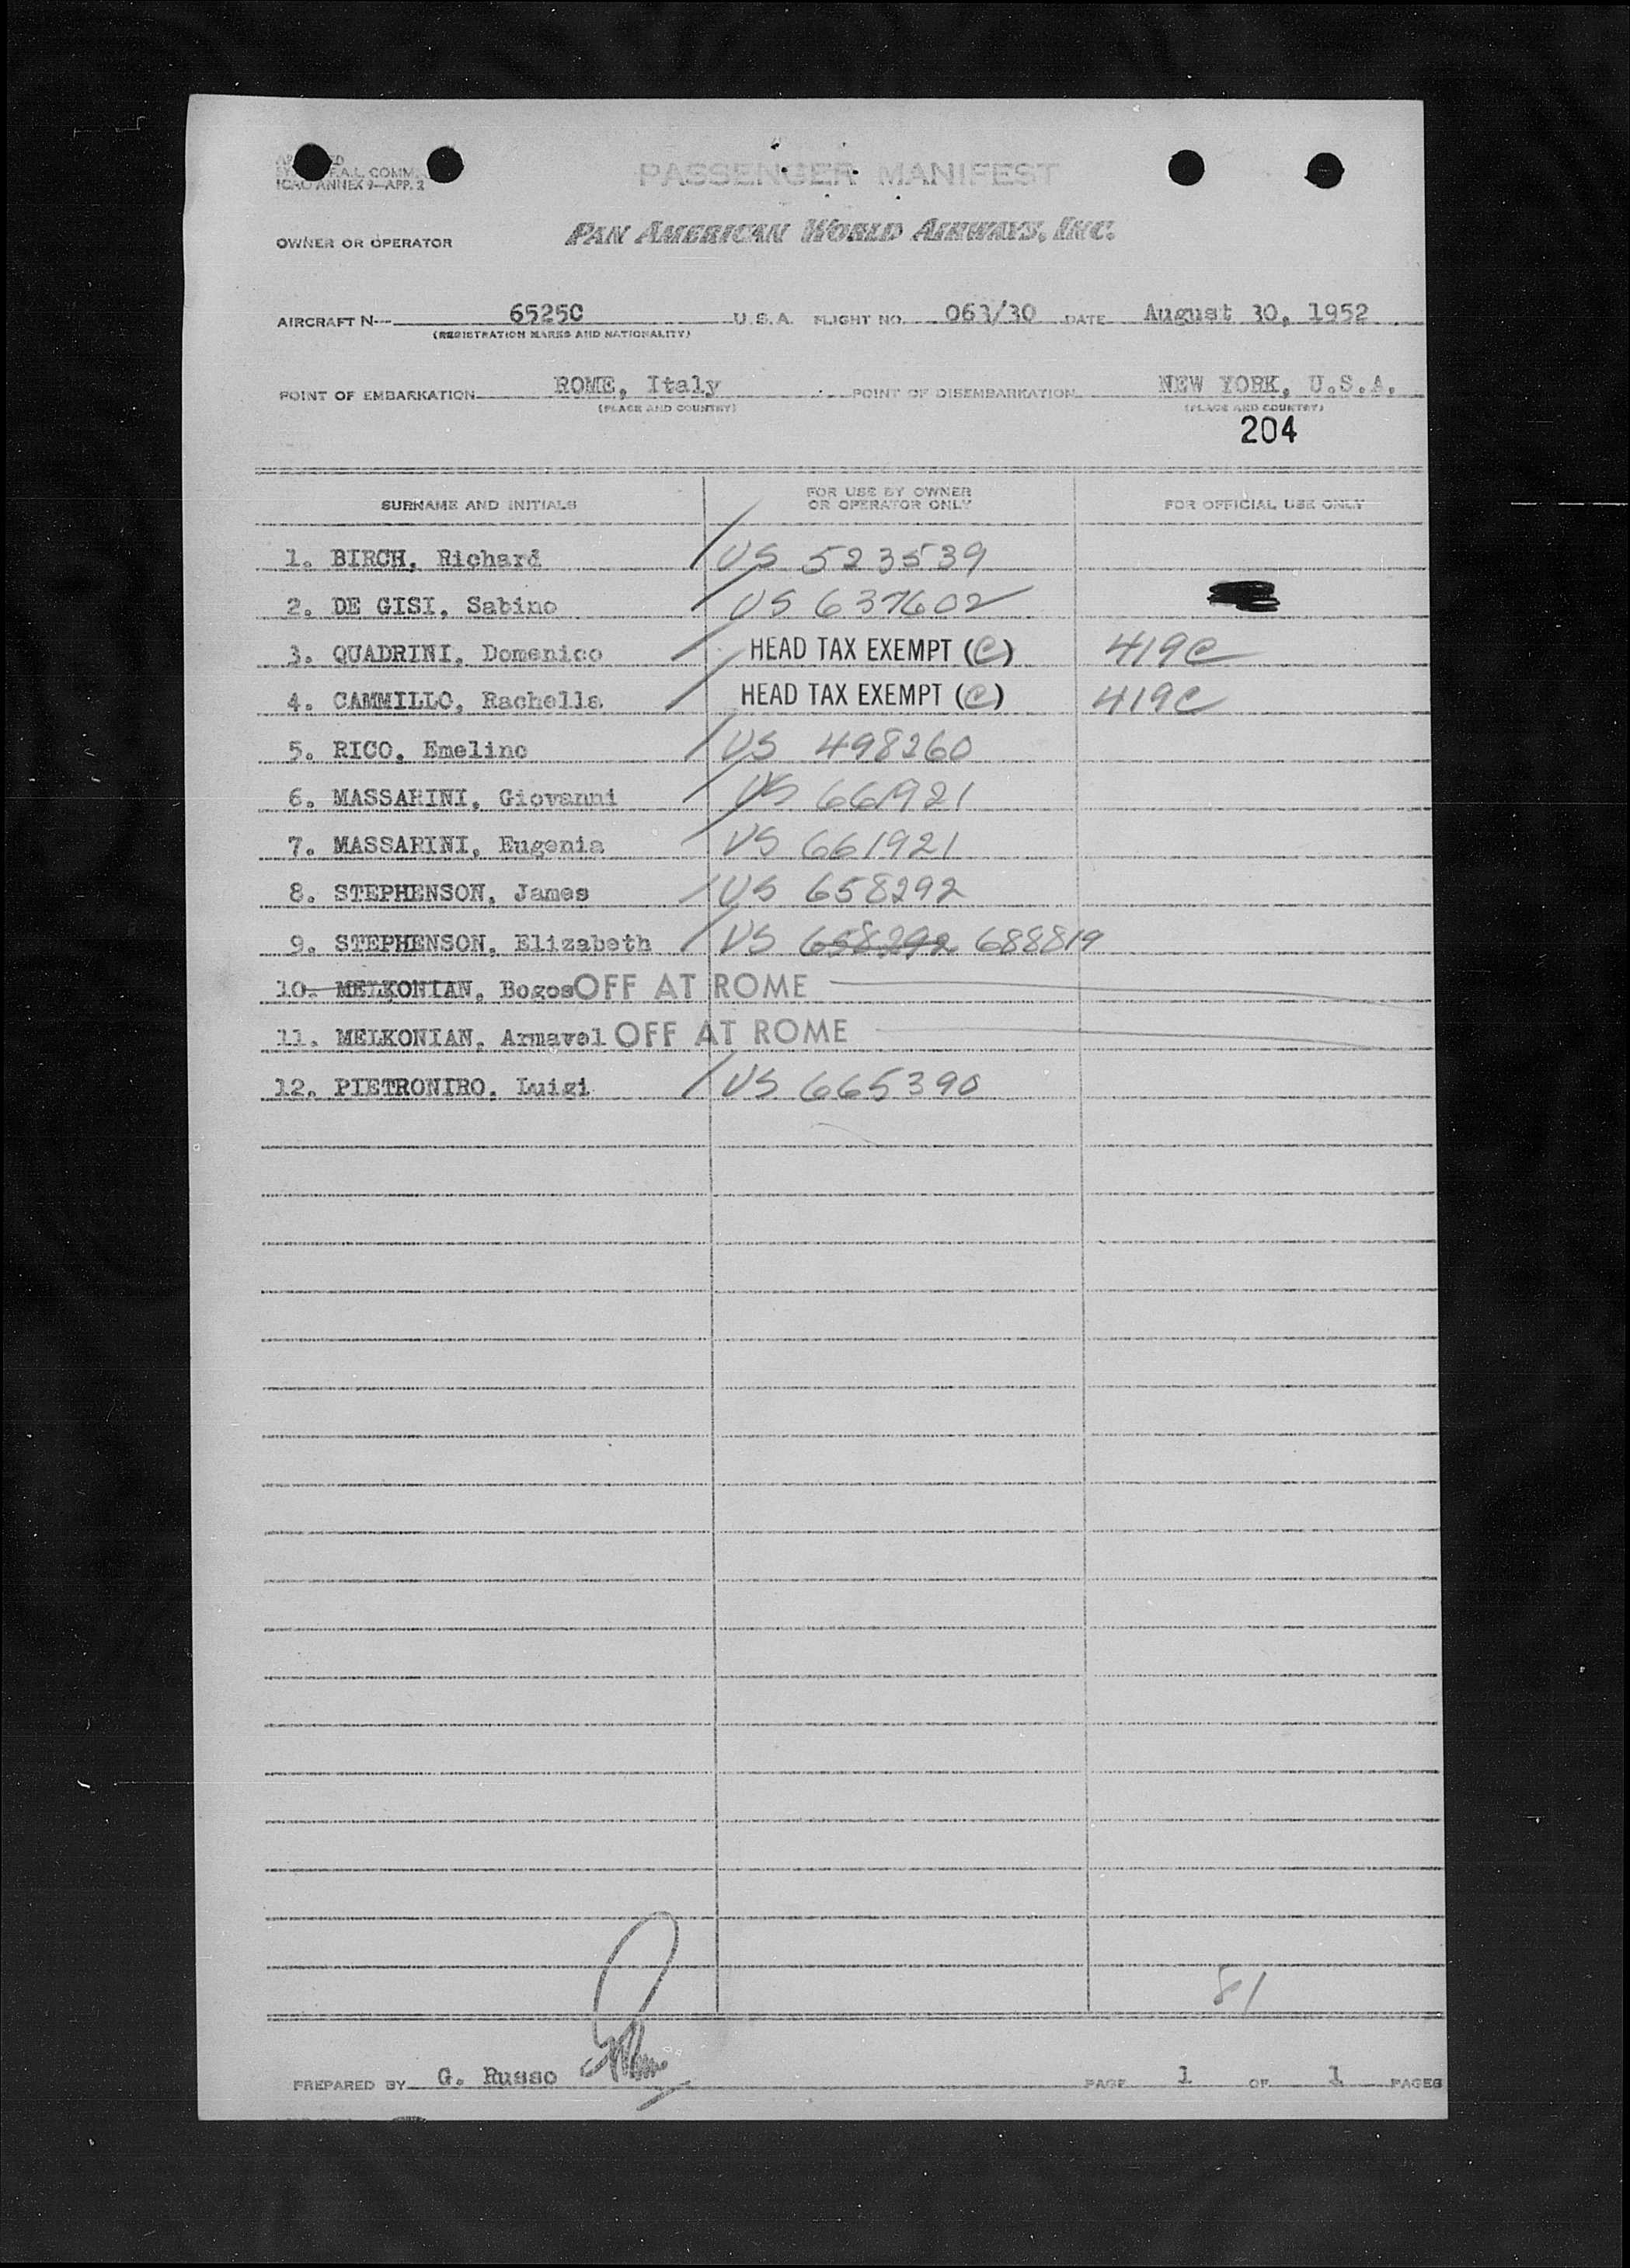 PASSENGER MANIFEST
F.A.L. COMM.
ICAO ANNEX 9—APP. 2
OWNER OR OPERATOR PAN AMERICAN WORLD AIRWAYS, INC.
AIRCRAFT N— 65250 U.S.A. FLIGHT NO. 061/30 DATE August 30, 1952
(REGISTRATION MARKS AND NATIONALITY)
POINT OF EMBARKATION ROME, Italy POINT OF DISEMBARKATION NEW YORK, U.S.A.
(PLACE AND COUNTRY) (PLACE AND COUNTRY)
204
SURNAME AND INITIALS FOR USE BY OWNER OR OPERATOR ONLY FOR OFFICIAL USE ONLY
1. BIRCH, Richard US 523539
2. DE GISI, Sabino US 637602
3. QUADRINI, Domenico HEAD TAX EXEMPT (C) 419C
4. CAMMILLO, Rachella HEAD TAX EXEMPT (C) 419C
5. RICO, Emelino US 498260
6. MASSARINI, Giovanni US 661921
7. MASSARINI, Eugenia US 661921
8. STEPHENSON, James US 658292
9. STEPHENSON, Elizabeth US 658292 688819
10. MELKONIAN, Bogos OFF AT ROME
11. MELKONIAN, Armavel OFF AT ROME
12. PIETRONIRO, Luigi US 665390
81
PREPARED BY G. Russo PAGE 1 OF 1 PAGES